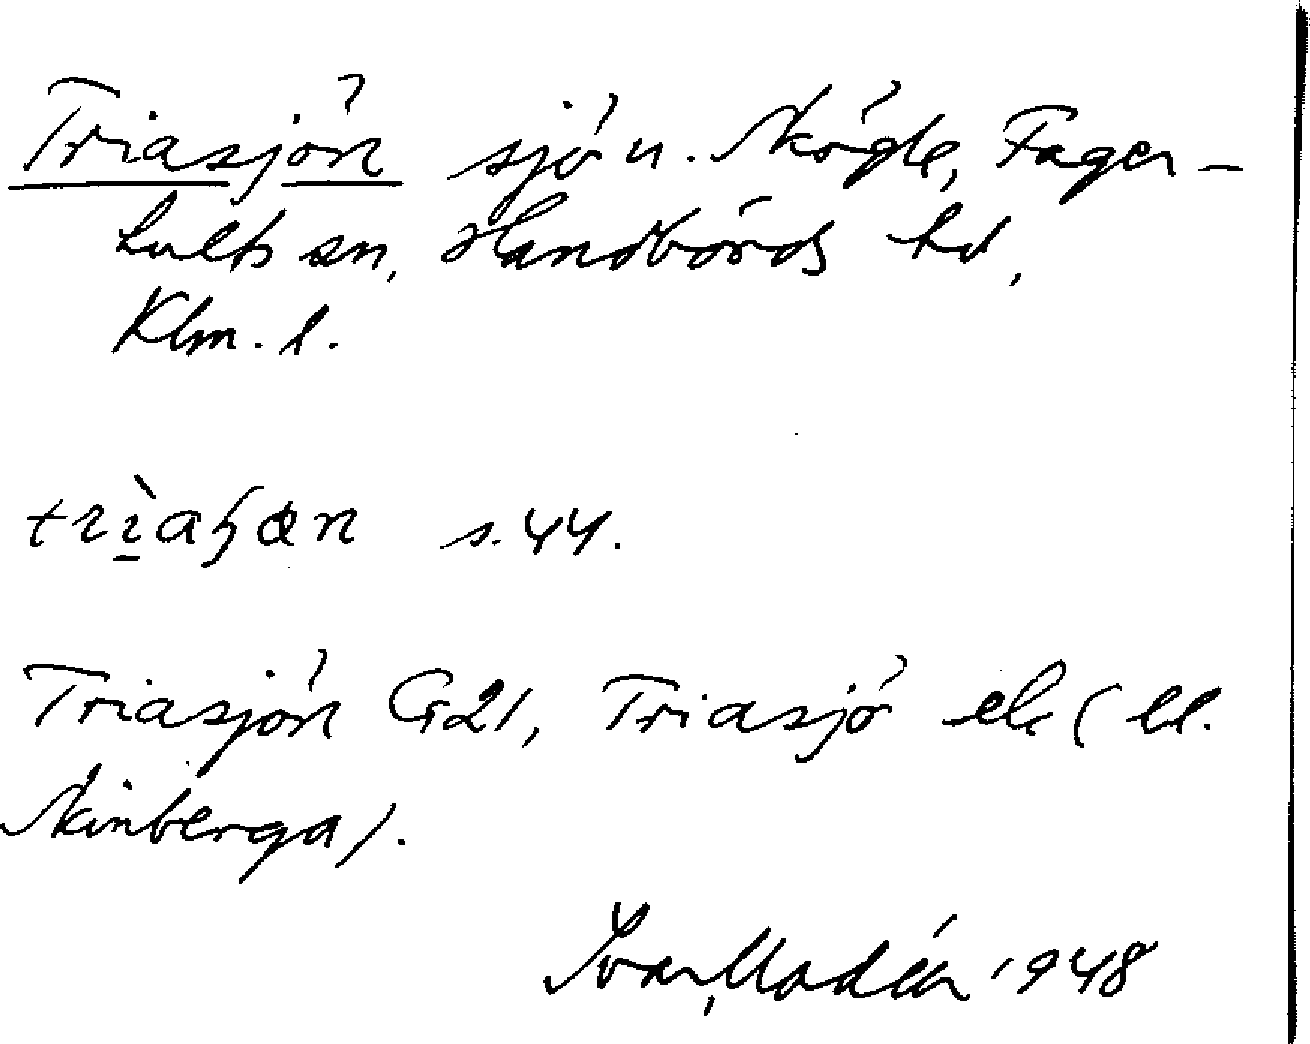 Triasjön sjö n. Skögle, Fager-
hults sn, Handbörds hd,
Klm. l.
trìaɧøn s. 44.
Triasjön G21, Triasjö ek (bl.
Skinberga).
Ivar Modéer 1948